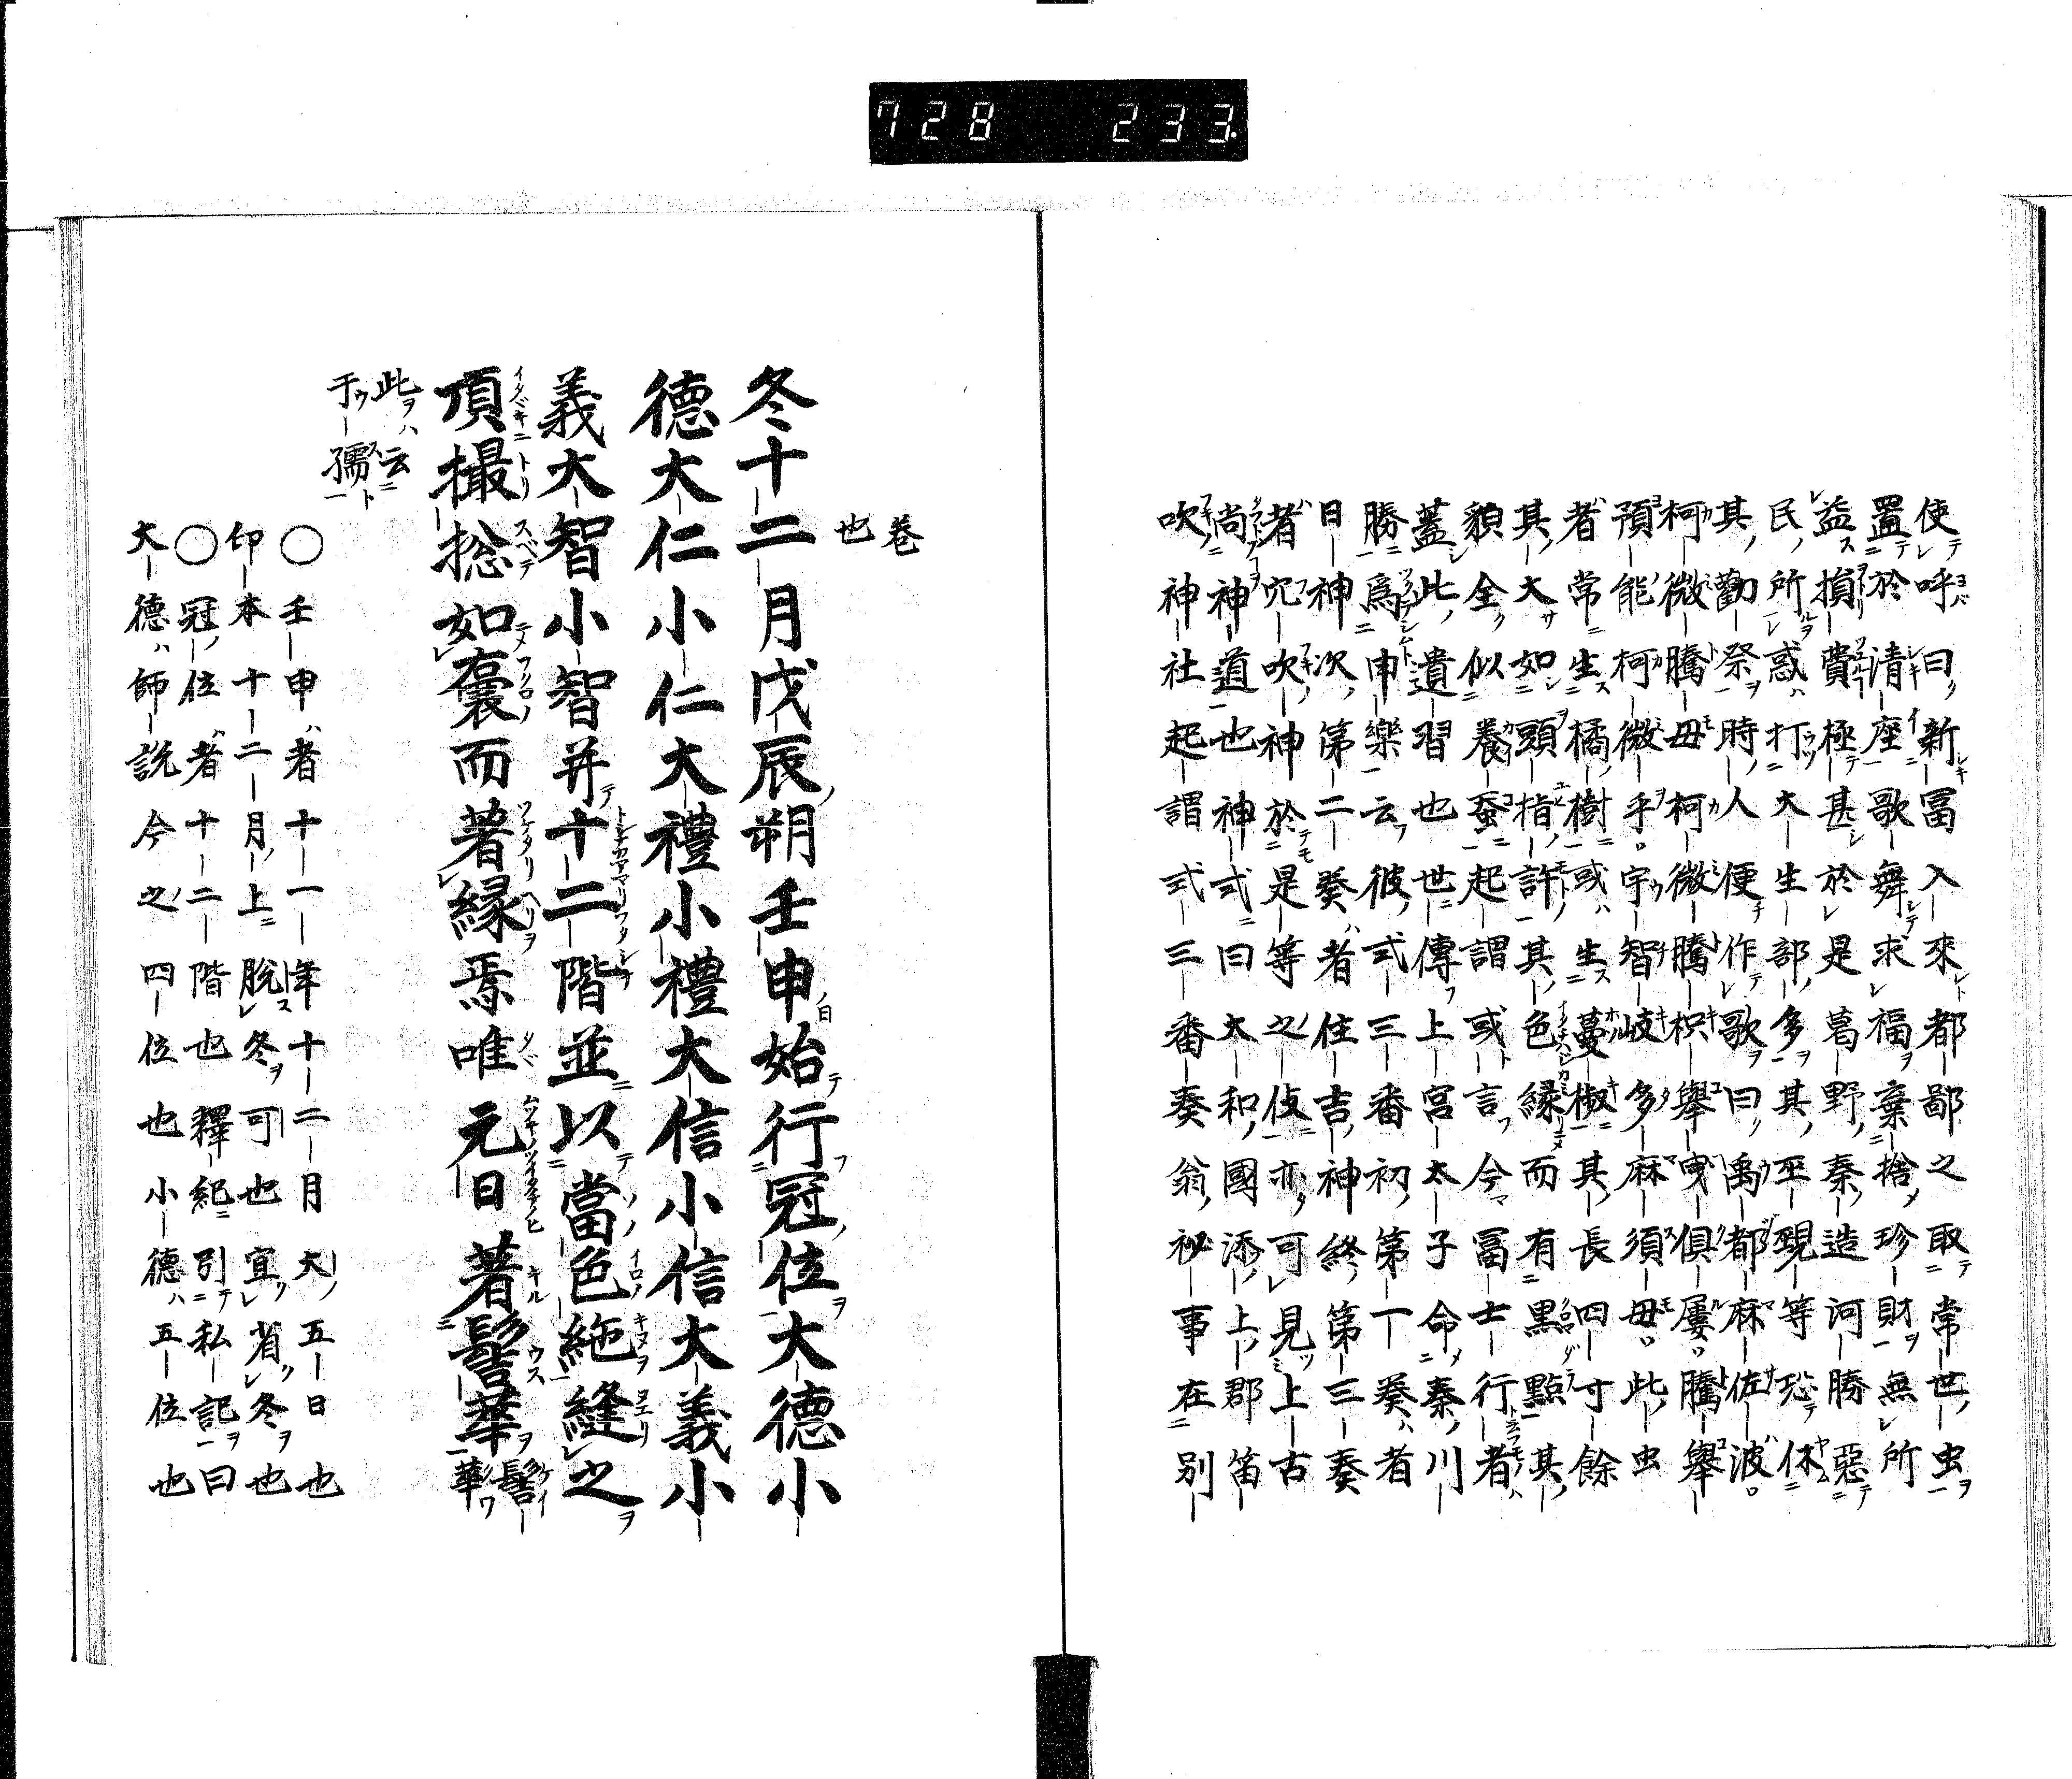 728 233.
使呼曰新冨入來都鄙之取常世虫
置於清座歌舞求福棄捨珍財無所
益損費極甚於是葛野秦造河勝惡
民所惑打大生部多其巫覡等恐休
其勸祭時人便作歌曰禹都麻佐波
柯微騰毋柯微騰枳舉曳倶屢騰舉
預能柯微乎宇智岐多麻須毋此虫
者常生橘樹或生蔓椒其長四寸餘
其大如頭指許其色緑而有黑點其
貌全似養蚕起謂或言今冨士行者
蓋此遺習也世傳上宮太子命秦川
勝為申樂云彼式三番初第一葵者
日神次第二葵者住吉神終第三奏
者穴吹神於是等之伎亦可見上古
尚神道也神式曰大和國添上郡笛
吹神社起謂式三番奏翁祕事在別
卷
也
冬十二月戊辰朔壬申始行冠位大德小
德大仁小仁大禮小禮大信小信大義小
義大智小智并十二階並以當色絁縫之
頂撮捴如囊而著縁焉唯元日著髻華髻華
此云
于孺
○壬申者十一年十二月大五日也
印本十二月上脫冬可也宜省冬也
○冠位者十二階也釋紀引私記曰
大德師說今之四位也小德五位也